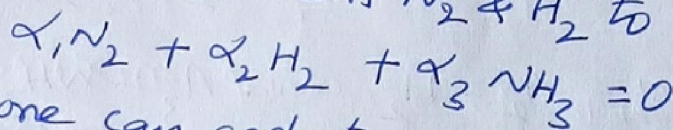 N₂ & H₂ to
α₁N₂ + α₂H₂ + α₃NH₃ = 0
one can